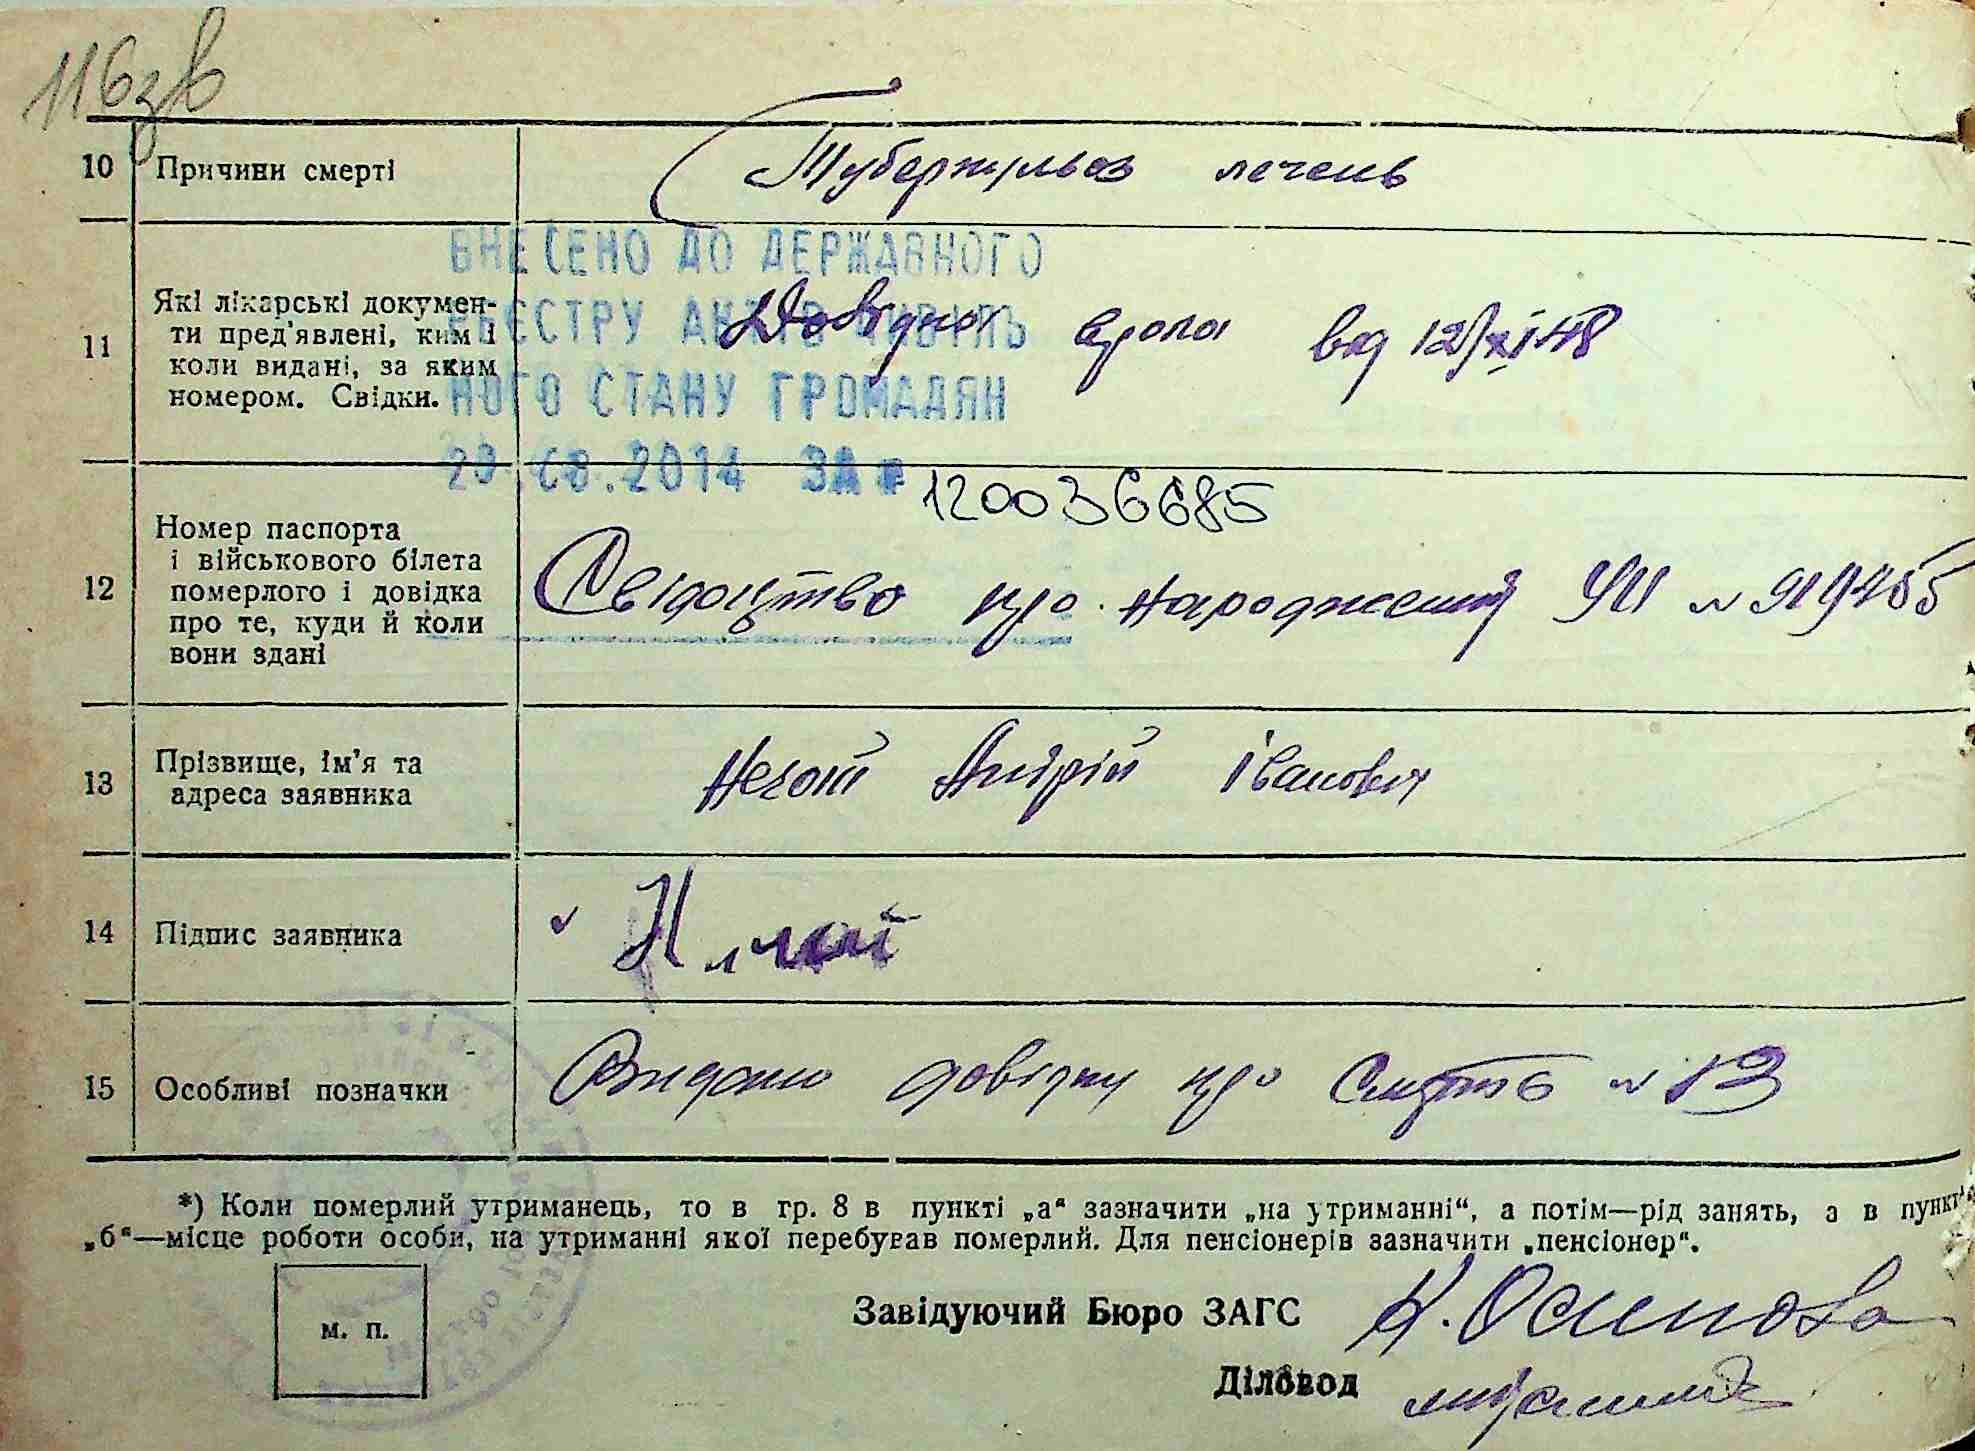 116зв
10 Причини смерті Туберкульоз легень
ВНЕСЕНО ДО ДЕРЖАВНОГО
РЕЄСТРУ АКТІВ ЦИВІЛЬ
НОГО СТАНУ ГРОМАДЯН
29.08.2014 ЗА № 120036685
11 Які лікарські докумен-
ти пред'явлені, ким і
коли видані, за яким
номером. Свідки.
Довідка від 12/XI 48
12 Номер паспорта
і військового білета
померлого і довідка
про те, куди й коли
вони здані
Свідоцтво про народження
13 Прізвище, ім'я та
адреса заявника
Андрій Іванович
14 Підпис заявника
15 Особливі позначки Видано довідку про смерть № 13
*) Коли померлий утриманець, то в гр. 8 в пункті „а“ зазначити „на утриманні“, а потім—рід занять, а в пункті
„б“—місце роботи особи, на утриманні якої перебував померлий. Для пенсіонерів зазначити „пенсіонер“.
м. п.
Завідуючий Бюро ЗАГС К. Осипова
Діловод